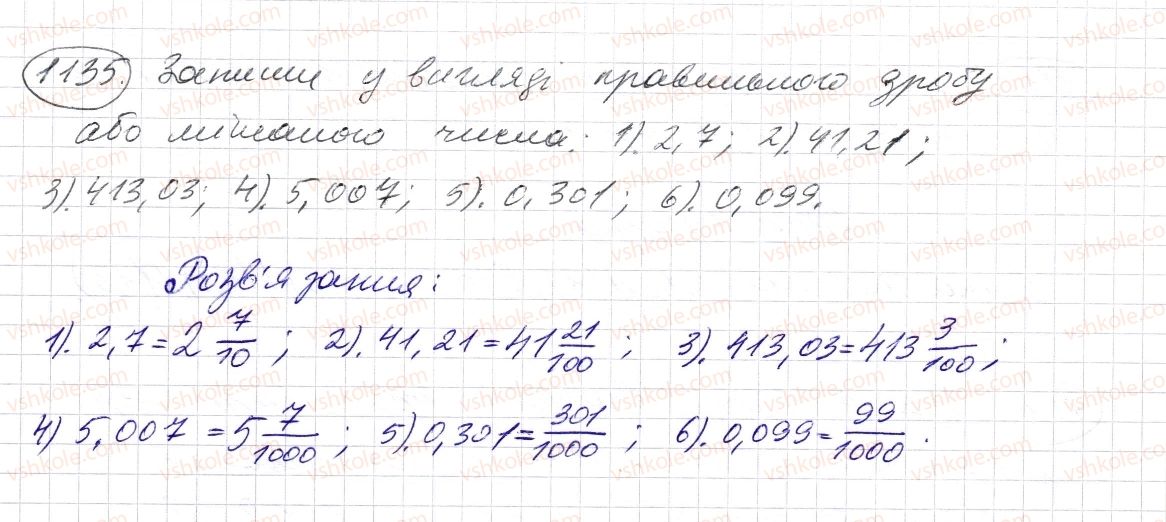 1135. Запиши у вигляді правильного дробу
або мішаного числа: 1). 2,7; 2). 41,21;
3). 413,03; 4). 5,007; 5). 0,301; 6). 0,099.
Розв'язання:
1). 2,7 = 2 7/10 ; 2). 41,21 = 41 21/100 ; 3). 413,03 = 413 3/100 ;
4) 5,007 = 5 7/1000 ; 5). 0,301 = 301/1000 ; 6). 0,099 = 99/1000 .